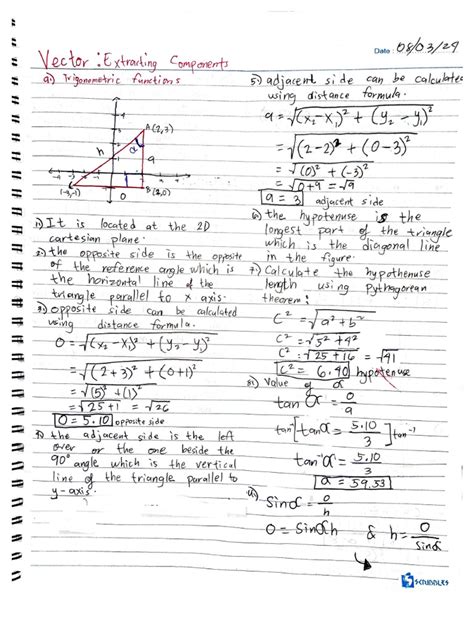 Date : 08/03/29
Vector : Extracting Components
a.) Trigonometric functions
A(2,3)
h
α
a
(-3,-1)
O
B(2,0)
1.) It is located at the 2D
cartesian plane.
2.) the opposite side is the opposite
of the reference angle which is
the horizontal line of the
triangle parallel to x axis.
3.) opposite side can be calculated
using distance formula.
O = √(x₂ - x₁)² + (y₂ - y₁)²
= √(2+3)² + (0+1)²
= √(5)² + (1)²
= √25+1 = √26
O = 5.10 opposite side
the adjacent side is the left
over or the one beside the
90° angle which is the vertical
line of the triangle parallel to
y-axis.
5.) adjacent side can be calculated
using distance formula.
a = √(x₂-x₁)² + (y₂-y₁)²
= √(2-2)² + (0-3)²
= √(0)² + (-3)²
= √0+9 = √9
a = 3 adjacent side
6.) the hypotenuse is the
longest part of the triangle
which is the diagonal line
in the figure.
7.) Calculate the hypothenuse
length using pythagorean
theorem:
c² = √a² + b²
c² = √5² + 4²
c² = √25 + 16 = √41
c² = 6.40 hypotenuse
8.) Value of α
tan α = O/a
tan⁻¹[tan α = 5.10/3] tan⁻¹
tan⁻¹ α = 5.10/3
α = 59.53
Sin α = O/h
O = Sin α h & h = O/sin α
SCRIBBLES